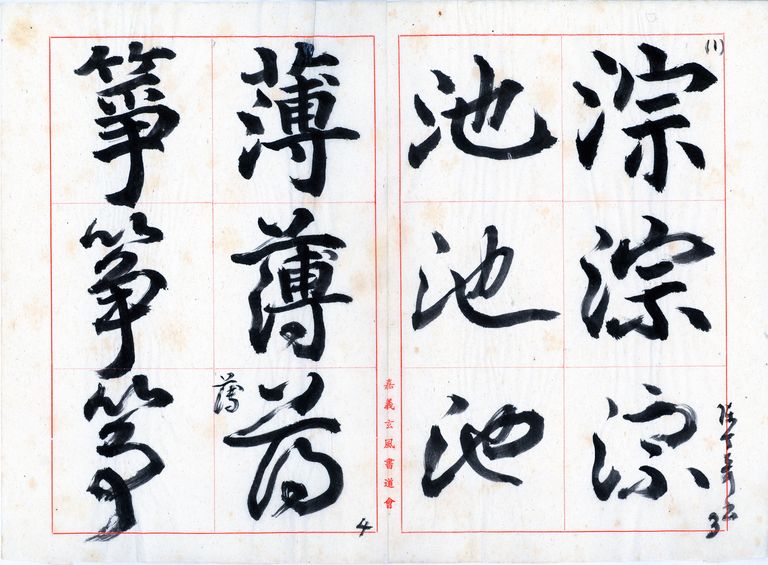 (1)
淙淙淙
3
池池池
嘉義玄風書道會
薄薄薄
薄
4
箏箏箏